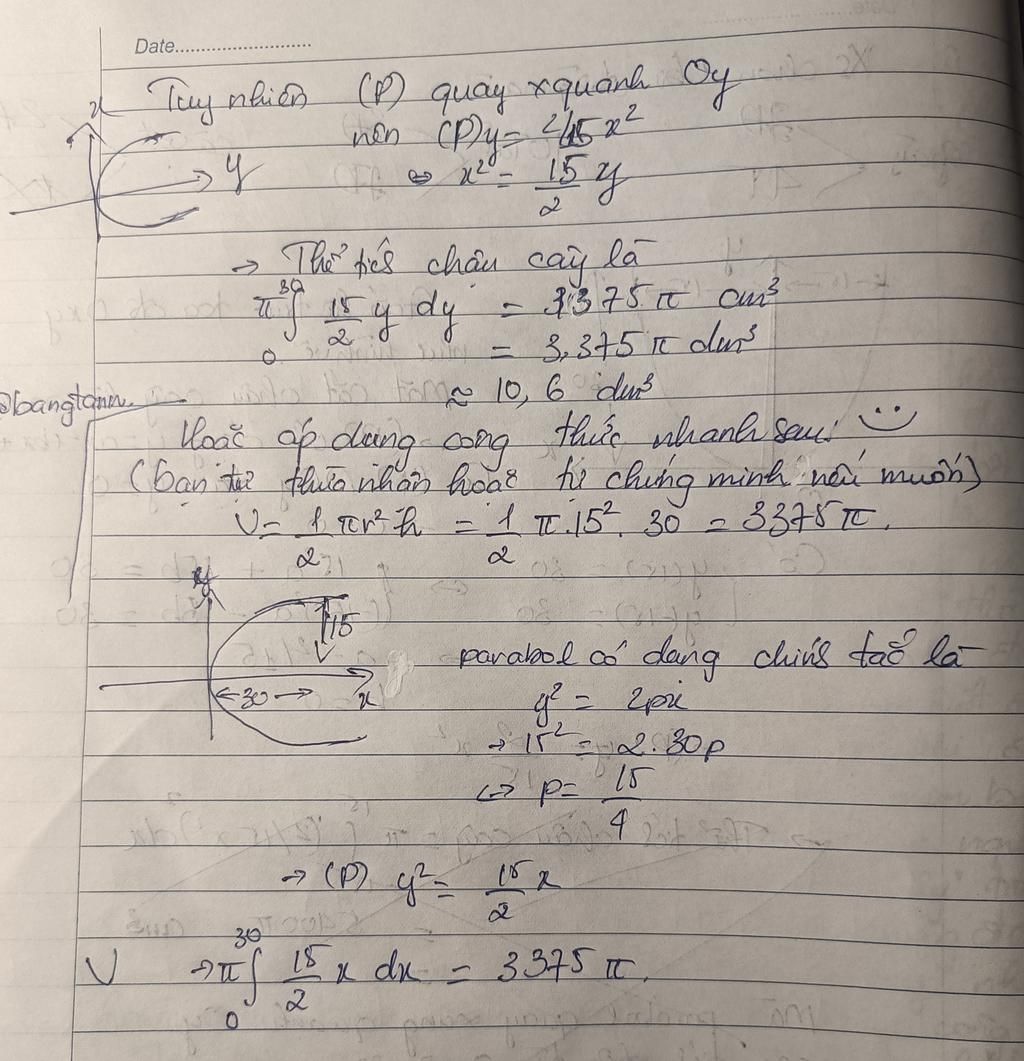 Date..............................
Tuy nhiên (P) quay xquanh Oy
nên (P)y = 2/15 x²
x
y
⇔ x² = 15/2 y
→ Thể tích chậu cây là
π ∫₀³⁰ 15/2 y dy = 3375 π cm³
= 3,375 π dm³
≈ 10,6 dm³
Hoặc áp dụng công thức nhanh sau:
(bạn tự thừa nhận hoặc tự chứng minh nếu muốn)
V = 1/2 πr²h = 1/2 π.15². 30 = 3375 π.
y
15
30
x
parabol có dạng chính tắc là
y² = 2px
→ 15² = 2.30p
⇔ p = 15/4
→ (P) y² = 15/2 x
V → π ∫₀³⁰ 15/2 x dx = 3375 π.